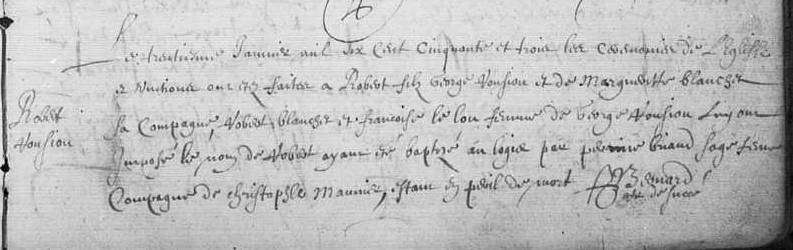 Le trentieme Janvier mil six Cent Cinquante et trois les Ceremonies de L'Eglise
et onctions ont etez faites a Robert filz George Vonsion et de Margueritte blanchet
Robert
Vonsion
sa Compagne, Robert blanchet et francoise le lou femme de George Vonsion Luy ont
Imposé le nom de Robert ayant esté baptizé au logis par perrine briand sage feme
Compagne de christophle Maunier, estant en peril de mort Besnard